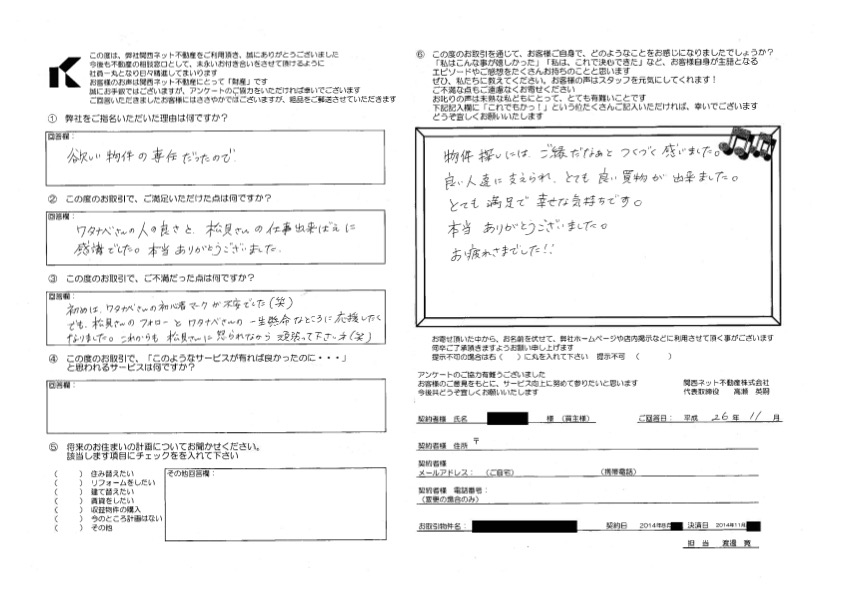 この度は、弊社関西ネット不動産をご利用頂き、誠にありがとうございました
今後も不動産の相談窓口として、末永いお付き合いをさせて頂けるように
社員一丸となり日々精進してまいります
お客様のお声は関西ネット不動産にとって「財産」です
誠にお手数ではございますが、アンケートのご協力をいただければ幸いでございます
ご回答いただきましたお客様にはささやかではございますが、粗品をご郵送させていただきます
① 弊社をご指名いただいた理由は何ですか?
回答欄:
欲しい物件の専任だったので
② この度のお取引で、ご満足いただけた点は何ですか?
回答欄:
ワタナベさんの人の良さと、松見さんの仕事出来ばえに
感情でした。本当ありがとうございました。
③ この度のお取引で、ご不満だった点は何ですか?
回答欄:
初めは、ワタナベさんの初心者マークが不安でした(笑)
でも、松見さんのフォローとワタナベさんの一生懸命なところに応援したく
なりました。これからも松見さんに怒られながら頑張って下さいネ(笑)
④ この度のお取引で、「このようなサービスが有れば良かったのに・・・」
と思われるサービスは何ですか?
回答欄:
⑤ 将来のお住まいの計画についてお聞かせください。
該当します項目にチェックをを入れて下さい
( ) 住み替えたい
( ) リフォームをしたい
( ) 建て替えたい
( ) 賃貸をしたい
( ) 収益物件の購入
( ) 今のところ計画はない
( ) その他
その他回答欄:
⑥ この度のお取引を通じて、お客様ご自身で、どのようなことをお感じになりましたでしょうか?
「私はこんな事が嬉しかった」「私は、これで決心できた」など、お客様自身が主語となる
エピソードやご感想をたくさんお持ちのことと思います
ぜひ、私たちに教えてください。お客様の声はスタッフを元気にしてくれます!
ご不満な点もご遠慮なくお寄せください
お叱りの声は未熟な私どもにとって、とても有難いことです
下記記入欄に「これでもかっ!」という位たくさんご記入いただければ、幸いでございます
どうぞ宜しくお願いいたします
物件探しには、ご縁だなぁとつくづく感じました。
良い人達に支えられ、とても良い買物が出来ました。
とても満足で幸せな気持ちです。
本当ありがとうございました。
お疲れさまでした!!
お寄せ頂いた中から、お名前を伏せて、弊社ホームページや店内掲示などに利用させて頂く事がございます
何卒ご了承頂きますようお願い申し上げます
提示不可の場合は右( )に丸を入れて下さい 提示不可 ( )
アンケートのご協力有難うございました
お客様のご意見をもとに、サービス向上に努めて参りたいと思います
今後共どうぞ宜しくお願いいたします
関西ネット不動産株式会社
代表取締役 高瀬 英嗣
契約者様 氏名 様 (買主様) ご回答日: 平成 26年 11月
契約者様 住所 〒
契約者様
メールアドレス: (ご自宅) (携帯電話)
契約者様 電話番号:
(変更の場合のみ)
お取引物件名: 契約日 2014年8月 決済日 2014年11月
担当 渡邊 寛